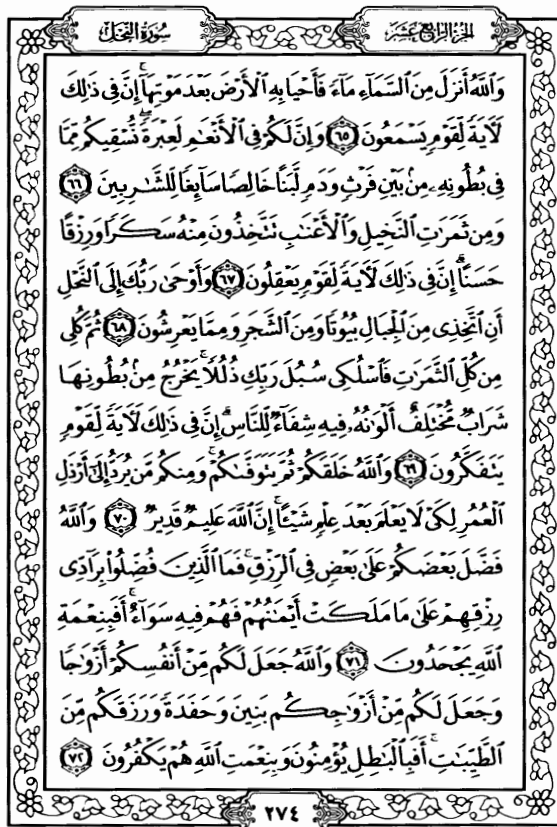 سُورَةُ النَّحْلِ
الجُزْءُ الرَّابِعَ عَشَرَ
وَٱللَّهُ أَنزَلَ مِنَ ٱلسَّمَآءِ مَآءً فَأَحْيَا بِهِ ٱلْأَرْضَ بَعْدَ مَوْتِهَآۚ إِنَّ فِى ذَٰلِكَ
لَءَايَةً لِّقَوْمٍ يَسْمَعُونَ ٦٥ وَإِنَّ لَكُمْ فِى ٱلْأَنْعَٰمِ لَعِبْرَةًۖ نُّسْقِيكُم مِّمَّا
فِى بُطُونِهِۦ مِنۢ بَيْنِ فَرْثٍ وَدَمٍ لَّبَنًا خَالِصًا سَآئِغًا لِّلشَّٰرِبِينَ ٦٦
وَمِن ثَمَرَٰتِ ٱلنَّخِيلِ وَٱلْأَعْنَٰبِ تَتَّخِذُونَ مِنْهُ سَكَرًا وَرِزْقًا
حَسَنًاۗ إِنَّ فِى ذَٰلِكَ لَءَايَةً لِّقَوْمٍ يَعْقِلُونَ ٦٧ وَأَوْحَىٰ رَبُّكَ إِلَى ٱلنَّحْلِ
أَنِ ٱتَّخِذِى مِنَ ٱلْجِبَالِ بُيُوتًا وَمِنَ ٱلشَّجَرِ وَمِمَّا يَعْرِشُونَ ٦٨ ثُمَّ كُلِى
مِن كُلِّ ٱلثَّمَرَٰتِ فَٱسْلُكِى سُبُلَ رَبِّكِ ذُلُلًاۚ يَخْرُجُ مِنۢ بُطُونِهَا
شَرَابٌ مُّخْتَلِفٌ أَلْوَٰنُهُۥ فِيهِ شِفَآءٌ لِّلنَّاسِۗ إِنَّ فِى ذَٰلِكَ لَءَايَةً لِّقَوْمٍ
يَتَفَكَّرُونَ ٦٩ وَٱللَّهُ خَلَقَكُمْ ثُمَّ يَتَوَفَّىٰكُمْۚ وَمِنكُم مَّن يُرَدُّ إِلَىٰٓ أَرْذَلِ
ٱلْعُمُرِ لِكَىْ لَا يَعْلَمَ بَعْدَ عِلْمٍ شَيْـًٔاۚ إِنَّ ٱللَّهَ عَلِيمٌ قَدِيرٌ ٧٠ وَٱللَّهُ
فَضَّلَ بَعْضَكُمْ عَلَىٰ بَعْضٍ فِى ٱلرِّزْقِۚ فَمَا ٱلَّذِينَ فُضِّلُوا۟ بِرَآدِّى
رِزْقِهِمْ عَلَىٰ مَا مَلَكَتْ أَيْمَٰنُهُمْ فَهُمْ فِيهِ سَوَآءٌۚ أَفَبِنِعْمَةِ
ٱللَّهِ يَجْحَدُونَ ٧١ وَٱللَّهُ جَعَلَ لَكُم مِّنْ أَنفُسِكُمْ أَزْوَٰجًا
وَجَعَلَ لَكُم مِّنْ أَزْوَٰجِكُم بَنِينَ وَحَفَدَةً وَرَزَقَكُم مِّنَ
ٱلطَّيِّبَٰتِۚ أَفَبِٱلْبَٰطِلِ يُؤْمِنُونَ وَبِنِعْمَتِ ٱللَّهِ هُمْ يَكْفُرُونَ ٧٢
٢٧٤